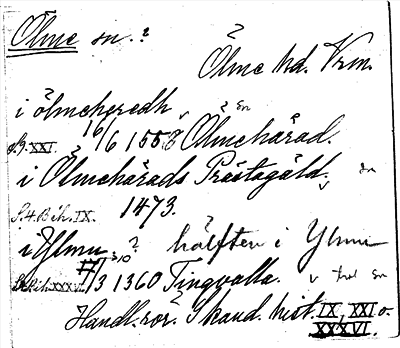 Ölme sn.?
Ölme hd. Vrm.
i ölmeheredh v sn
s.9. XXI. 16/6 1558 Ölmehärad.
i Ölmehärads Prästagäld. v sn
S. 4. Bih. IX. 1473.
i Ylmu ? hälften i Ylmu
Bih. XXXVI. /3 1360 Tingvalla. v sn
Handl. rör. Skand. hist. IX, XXI o.
XXXVI.